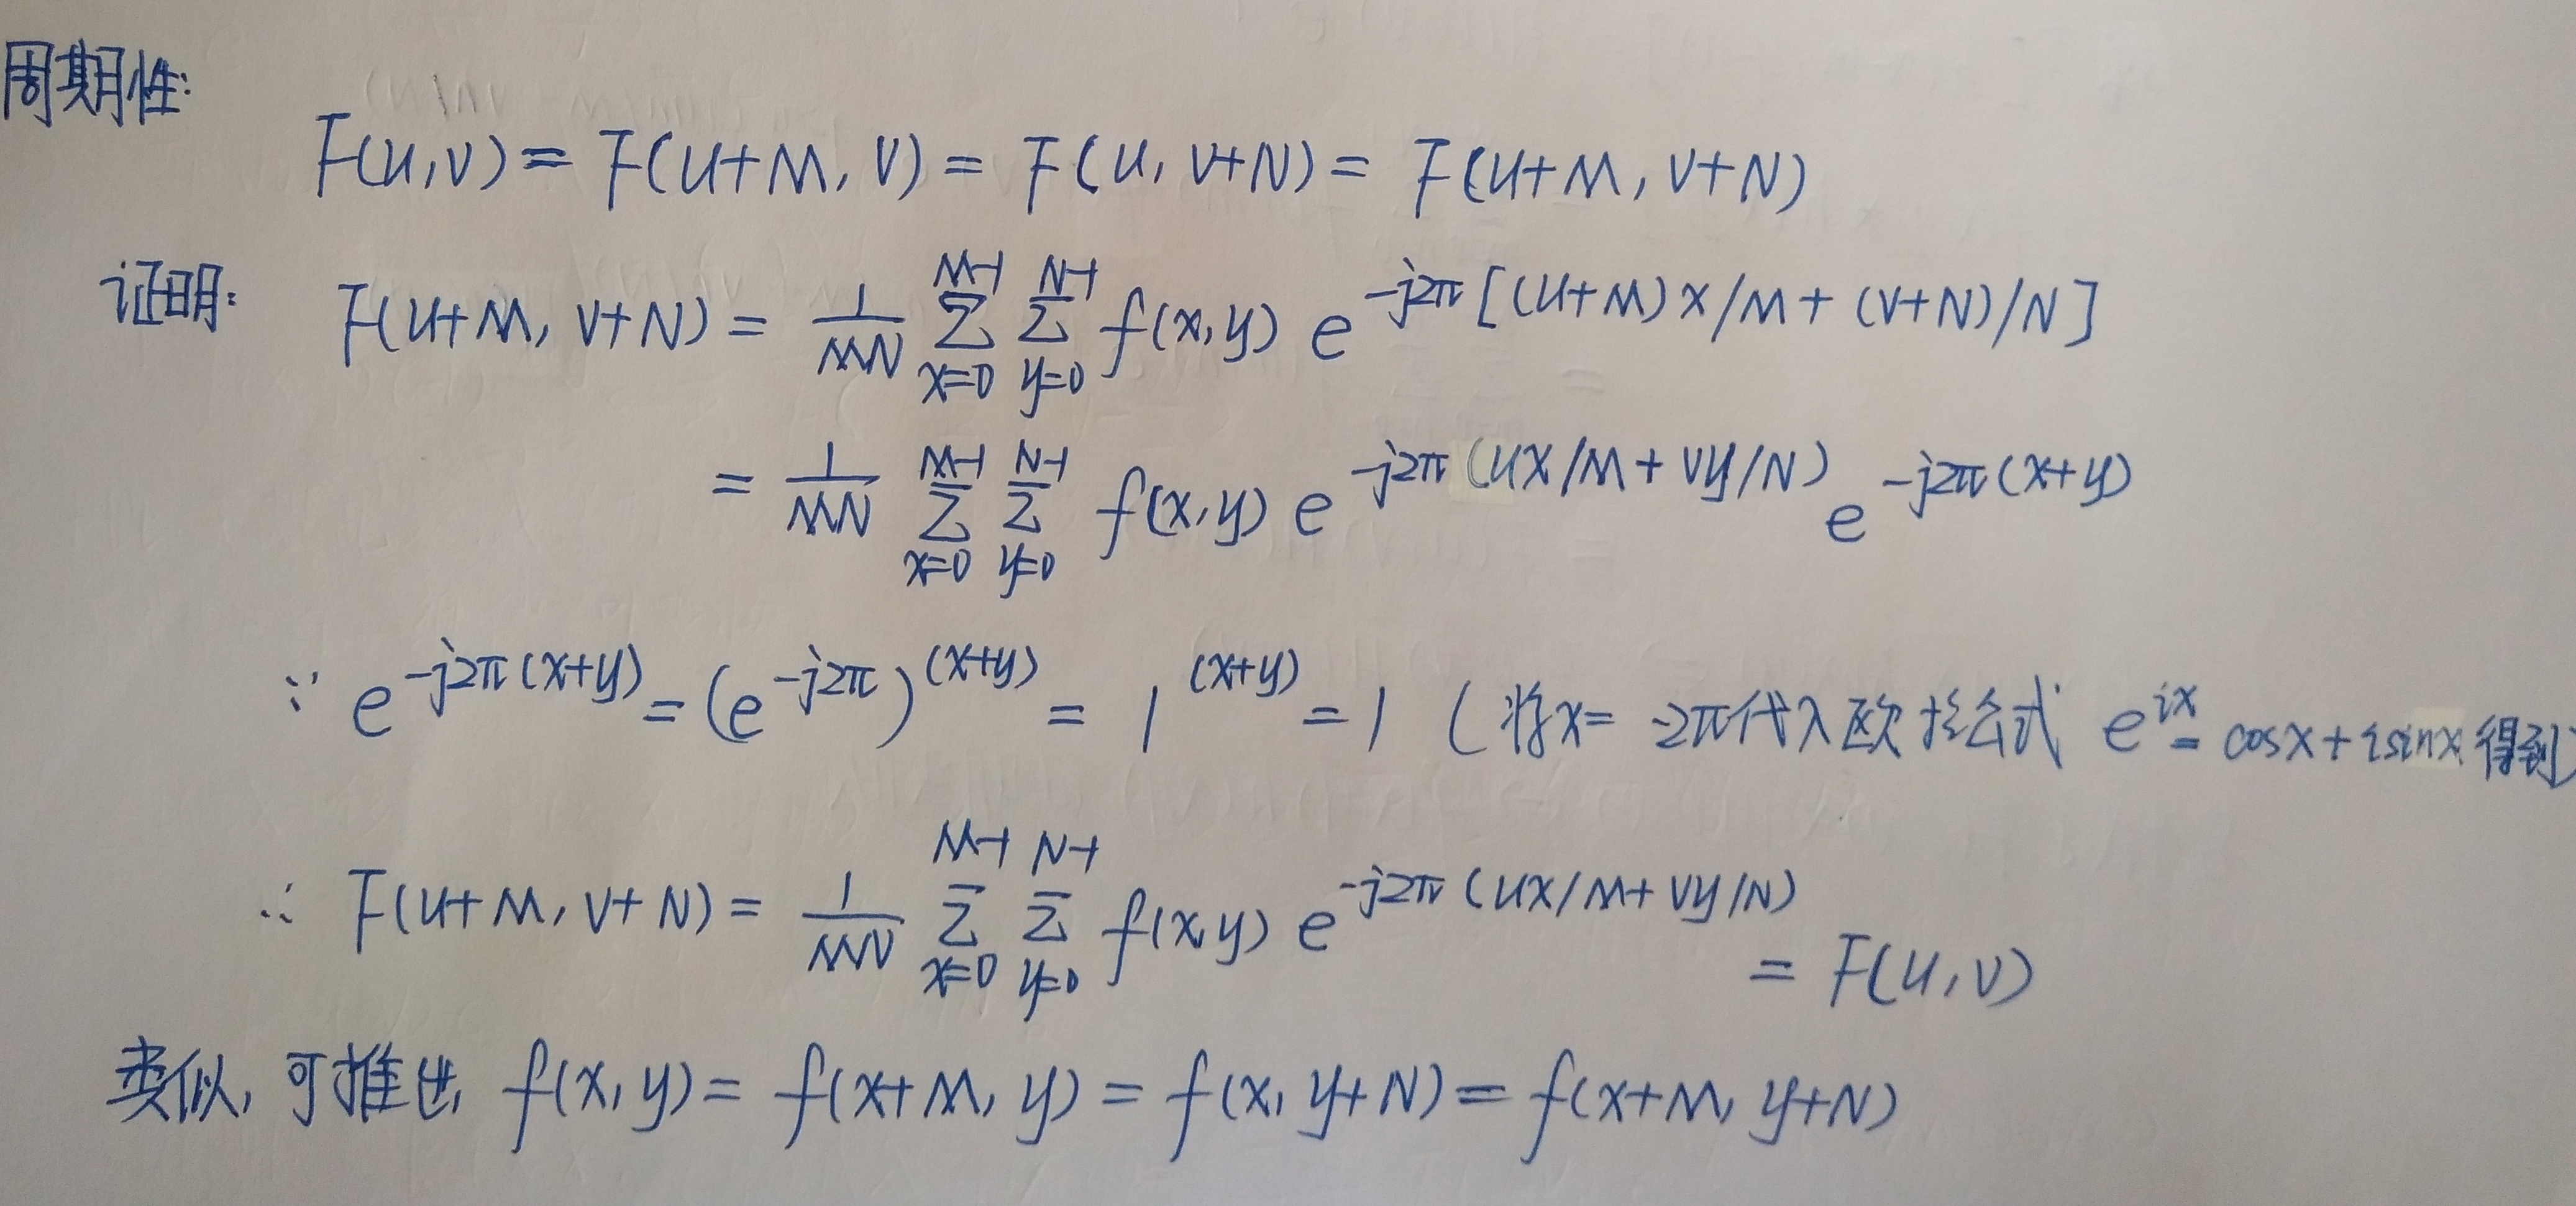 周期性:
F(u,v) = F(u+M, v) = F(u, v+N) = F(u+M, v+N)
证明: F(u+M, v+N) = \frac{1}{MN} \sum_{x=0}^{M-1} \sum_{y=0}^{N-1} f(x,y) e^{-j2π[(u+M)x/M + (v+N)/N]}
= \frac{1}{MN} \sum_{x=0}^{M-1} \sum_{y=0}^{N-1} f(x,y) e^{-j2π(ux/M + vy/N)} e^{-j2π(x+y)}
∵ e^{-j2π(x+y)} = (e^{-j2π})^{(x+y)} = 1^{(x+y)} = 1 (将x= -2π代入欧拉公式 e^{ix} = cosx + isinx 得到)
∴ F(u+M, v+N) = \frac{1}{MN} \sum_{x=0}^{M-1} \sum_{y=0}^{N-1} f(x,y) e^{-j2π(ux/M + vy/N)}
= F(u,v)
类似,可推出 f(x,y) = f(x+M, y) = f(x, y+N) = f(x+M, y+N)